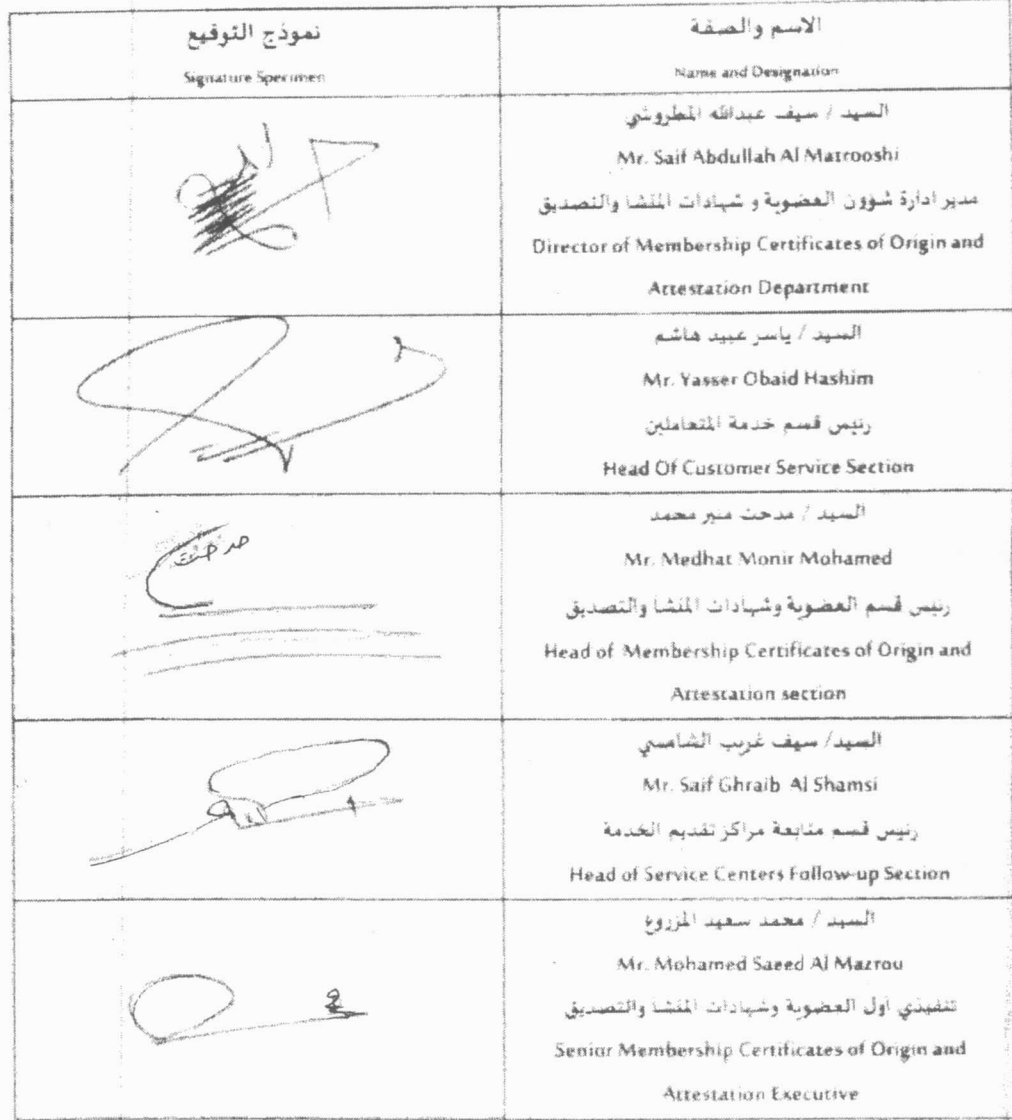 الاسم والصفة
Name and Designation
نموذج التوقيع
Signature Specimen
السيد / سيف عبدالله المطروشي
Mr. Saif Abdullah Al Matrooshi
مدير ادارة شؤون العضوية و شهادات المنشا والتصديق
Director of Membership Certificates of Origin and
Attestation Department
السيد / ياسر عبيد هاشم
Mr. Yasser Obaid Hashim
رئيس قسم خدمة المتعاملين
Head Of Customer Service Section
السيد / مدحت منير محمد
Mr. Medhat Monir Mohamed
رئيس قسم العضوية وشهادات المنشا والتصديق
Head of Membership Certificates of Origin and
Attestation section
مدحت
السيد/ سيف غريب الشامسي
Mr. Saif Ghraib Al Shamsi
رئيس قسم متابعة مراكز تقديم الخدمة
Head of Service Centers Follow-up Section
السيد / محمد سعيد المزروع
Mr. Mohamed Saeed Al Mazrou
تنفيذي أول العضوية وشهادات المنشا والتصديق
Senior Membership Certificates of Origin and
Attestation Executive